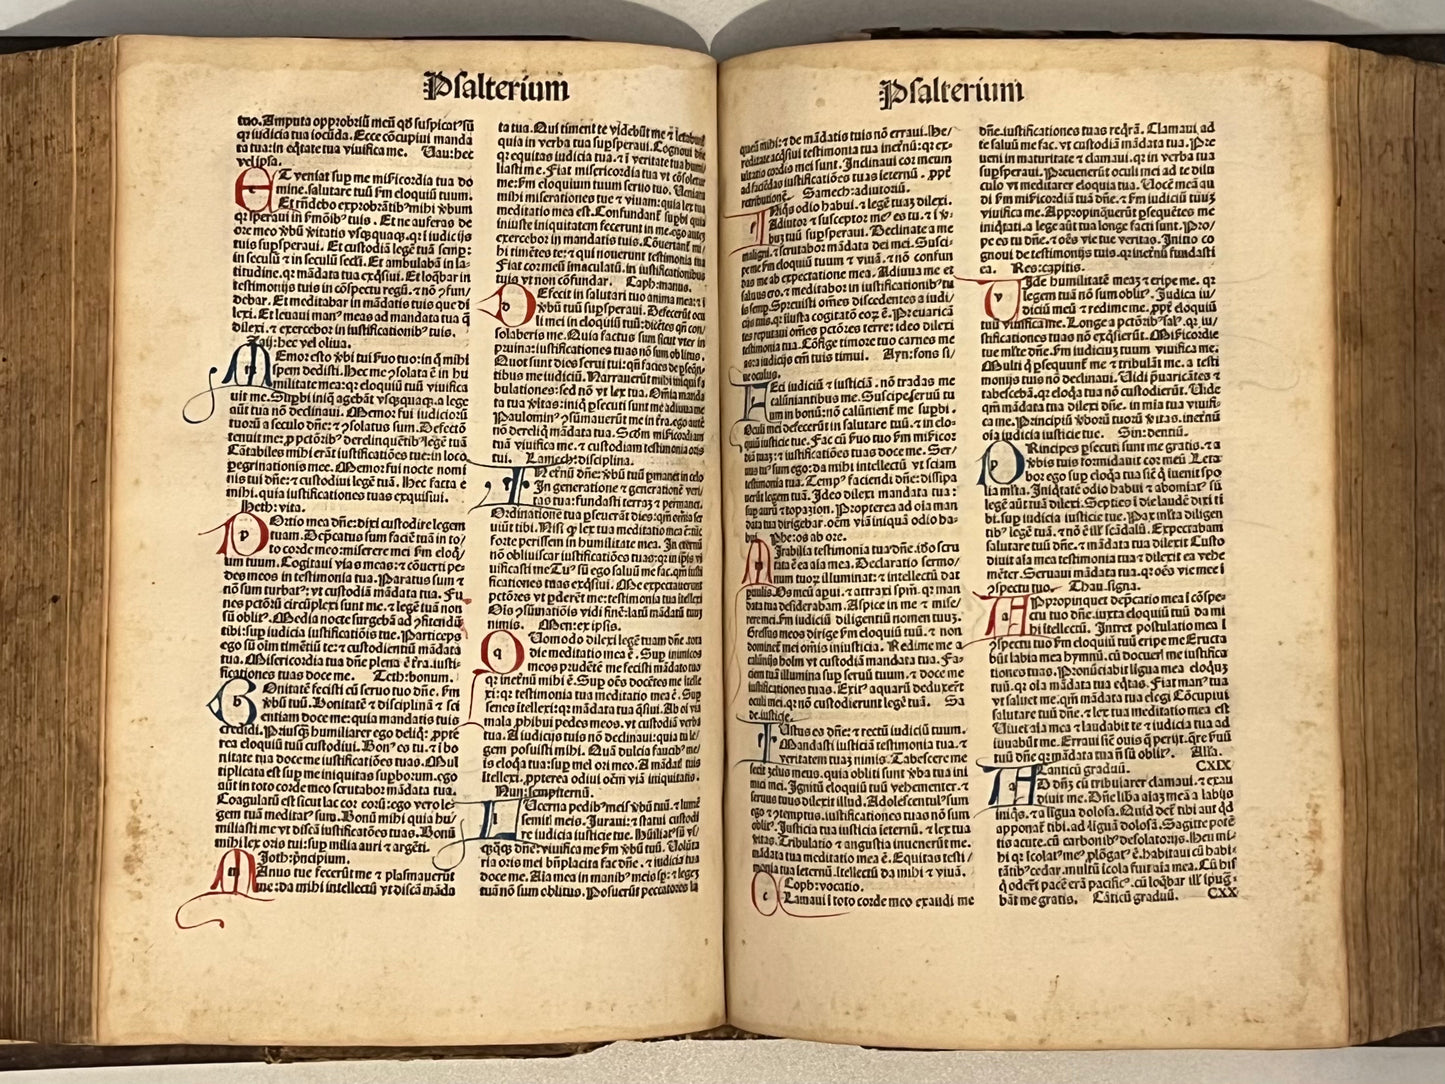 Psalterium
tuo. Amputa opprobriũ meũ qđ suspicatꝰ sũ
qꝛ iudicia tua iocũda. Ecce cõcupiui manda
ta tua: in eq̃tate tua viuifica me. Uau: hec
vel ipsa.
ET veniat sup me misicordia tua do
mine. salutare tuũ ẜm eloquiũ tuum.
Et rñdebo exprobrãtibꝰ mihi ỽbum
qꝛ speraui in ẜmõibꝰ tuis. Et ne auferas de
ore meo ỽbũ ỽitatis vsq̃quaq̃. qꝛ ĩ iudicijs
tuis supsperaui. Et custodiã legẽ tuã semp:
in seculũ ⁊ in seculũ secĩ. Et ambulabã in la-
titudine. qꝛ mãdata tua exq̃siui. Et loq̃bar in
testimonijs tuis in cõspectu regũ. ⁊ nõ ꝯfun/
debar. Et meditabar in mãdatis tuis que di
lexi. Et leuaui manꝰ meas ad mandata tua q̃
dilexi. ⁊ exercebor in iustificationibꝰ tuis.
Zaij: hec vel oliua.
MEmor esto ỽbi tui ẜuo tuo: in q̃ mihi
spem dedisti. Hec me ꝯsolata ẽ in hu
militate mea: qꝛ eloquiũ tuũ viuifica
uit me. Supbi iniq̃ agebãt vsq̃quaq̃. a lege
aũt tua nõ declinaui. Memor fui iudicioꝝũ
tuorũ a seculo dñe: ⁊ ꝯsolatus sum. Defectõ
tenuit me: ꝓ pctõribꝰ derelinquẽtibꝰ legẽ tuã
Cãtabiles mihi erãt iustificatiões tue: in loco
pegrinationis mee. Memor fui nocte nomi
nis tui dñe: ⁊ custodiui legẽ tuã. Hec facta ẽ
mihi. quia iustificationes tuas exquisiui.
Heth: vita.
POrtio mea dñe: dixi custodire legem
tuam. Depcatus sum faciẽ tuã in to/
to corde meo: miserere mei ẜm eloq̃/
um tuum. Cogitaui vias meas: ⁊ cõuerti pe-
des meos in testimonia tua. Paratus sum ⁊
nõ sum turbatꝰ: vt custodiã mãdata tua. Fu
nes pctõrũ circũplexi sunt me. ⁊ legẽ tuã non
sũ oblitꝰ. Media nocte surgebã ad ꝯfitendũ
tibi: sup iudicia iustificatiõis tue. Particeps
ego sũ oĩm timẽtiũ te: ⁊ custodientiũ mãdata
tua. Misericordia tua dñe plena ẽ t̃ra. iusti-
ficationes tuas doce me. Teth: bonum.
BOnitatẽ fecisti cũ seruo tuo dñe. ẜm
ỽbũ tuũ. Bonitatẽ ⁊ disciplinã ⁊ sci
entiam doce me: quia mandatis tuis
credidi. Priusq̃ humiliarer ego deliq̃: ꝓpte
rea eloquiũ tuũ custodiui. Bonꝰ es tu. ⁊ ĩ bo
nitate tua doce me iustificatiões tuas. Mul
tiplicata est sup me iniquitas supborum. ego
aũt in toto corde meo scrutabor mãdata tua.
Coagulatũ est sicut lac cor eoꝝũ: ego vero le-
gem tuã meditatꝰ sum. Bonũ mihi quia hu/
miliasti me vt discã iustificatiões tuas. Bonũ
mihi lex oris tui: sup milia auri ⁊ argẽti.
Joth: pñcipium.
MAnus tue fecerũt me ⁊ plasmauerũt
me: da mihi intellectũ vt discã mãda
ta tua. Qui timent te videbũt me ⁊ letabunt̃
quia in verba tua supsperaui. Cognoui dñe
qꝛ equitas iudicia tua. ⁊ ĩ veritate tua humi/
liasti me. Fiat misericordia tua vt cõsolet̃
me: ẜm eloquium tuum seruo tuo. Ueniant
mihi miserationes tue ⁊ viuam: quia lex tua
meditatio mea est. Confundant̃ supbi quia
iniuste iniquitatem fecerunt in me. ego autẽ
exercebor in mandatis tuis. Cõuertant̃ mi/
hi timẽtes te: ⁊ qui nouerunt testimonia tua
Fiat cor meũ ĩmaculatũ. in iustificationibus
tuis vt non cõfundar. Caph: manus.
DEfecit in salutari tuo anima mea: ⁊ ĩ
ỽbũ tuũ supsperaui. Defecerũt ocu
li mei in eloquiũ tuũ: dicẽtes qñ con/
solaberis me. Quia factus sum sicut vter in
pruina: iustificationes tuas nõ sum oblitus.
Quot sunt dies serui tui: qñ facies de pseqñ
tibus me iudiciũ. Narrauerũt mihi iniqui fa
bulationes: sed nõ vt lex tua. Oĩa manda
ta tua ỽitas: iniq̃ psecuti sunt me adiuua me
Paulominꝰ ꝯsũmauerũt me in t̃ra. ego autẽ
nõ dereliq̃ mãdata tua. Scdm misicordiam
tuã viuifica me. ⁊ custodiam testimonia oris
tui. Lamech: disciplina.
INet̃nũ dñe: ỽbũ tuũ pmanet in celo
In generatione ⁊ generationẽ veri/
tas tua: fundasti terraz ⁊ permanet.
Ordinatione tua pseuerãt dies: qm̃ oĩa ser
uiũt tibi. Nisi q̃ lex tua meditatio mea ẽ: tũc
forte perissem in humilitate mea. In et̃nũ
nõ obliuiscar iustificatiões tuas: qꝛ in ip̃is vi
uificasti me Tuꝰ sũ ego saluũ me fac. qm̃ iusti
ficationes tuas exq̃siui. Me expectauerunt
pctõres vt pderẽt me: testimonia tua ĩtellexi
Oĩs ꝯsũmatiõis vidi finẽ: latũ mãdatũ tuũ
nimis. Men: ex ipsis.
QUomodo dilexi legẽ tuam dñe. tota
die meditatio mea ẽ. Sup inimicos
meos prudẽtẽ me fecisti mãdato tuo
qꝛ inet̃nũ mihi ẽ. Sup oẽs docẽtes me ĩtelle
xi: qꝛ testimonia tua meditatio mea ẽ. Sup
senes ĩtellexi: qꝛ mãdata tua q̃siui. Ab oĩ via
mala ꝓhibui pedes meos. vt custodiã verba
tua. A iudicijs tuis nõ declinaui: quia tu le/
gem posuisti mihi. Quã dulcia faucibꝰ me/
is eloq̃a tua: sup mel ori meo. A mãdatis tuis
ĩtellexi. ꝓpterea odiui oẽm viã iniquitatis.
Nun: sempiternũ.
LUcerna pedibꝰ meis ỽbũ tuũ. ⁊ lumẽ
semitꝭ meis. Iuraui: ⁊ statui custodi
re iudicia iusticie tue. Hũiliatꝰ sũ vs/
q̃q̃q̃ dñe: viuifica me ẜm ỽbũ tuũ. Uolũta
ria oris mei bñplacita fac dñe. ⁊ iudicia tua
doce me. Aĩa mea in manibꝰ meis sp: ⁊ legez
tuã nõ sum oblitus. Posuerũt peccatores la
Psalterium
queũ mihi: ⁊ de mãdatis tuis nõ erraui. He/
reditate acq̃siui testimonia tua inet̃nũ: qꝛ ex-
ultatio cordis mei sunt. Inclinaui cor meum
ad faciẽdas iustificatiões tuas ĩeternũ. ꝓpt̃
retributionẽ. Samech: adiutoriũ.
INiq̃s odio habui. ⁊ legẽ tuaz dilexi.
Adiutor ⁊ susceptor meꝰ es tu. ⁊ ĩ ỽ-
buz tuũ supsperaui. Declinate a me
maligni. ⁊ scrutabor mãdata dei mei. Susci-
pe me ẜm eloquiũ tuum ⁊ viuã. ⁊ nõ confun
das me ab expectatione mea. Adiuua me et
saluus ero. ⁊ meditabor in iustificationibꝰ tu
is semp. Spreuisti oẽs discedentes a iudi/
cijs tuis. qꝛ iĩusta cogitatõ eoꝝ ẽ. Preuaricã
tes reputaui oẽs pctõres terre: ideo dilexi
testimonia tua. Cõfige timore tuo carnes me
as: a iudicijs em̃ tuis timui. Ayn: fons si/
ue oculus.
FEci iudiciũ ⁊ iusticiã. nõ tradas me
calũniantibus me. Suscipe seruũ tu
um in bonũ: nõ calũnient̃ me supbi.
Oculi mei defecerũt in salutare tuũ. ⁊ in elo-
quiũ iusticie tue. Fac cũ ẜuo tuo ẜm misicor
diã tuaz: ⁊ iustificatiões tuas doce me. Ser/
uus tuꝰ sum ego: da mihi intellectũ vt sciam
testimonia tua. Tempꝰ faciendi dñe: dissipa
uerũt legem tuã. Ideo dilexi mandata tua:
sup aurũ ⁊ topazion. Propterea ad oĩa man
data tua dirigebar. oẽm viã iniquã odio ha-
bui. Phe: os ab ore.
MIrabilia testimonia tua dñe. iõo scru
tata ẽ ea aĩa mea. Declaratio sermo/
num tuoꝝ illuminat: ⁊ intellectũ dat
puulis. Os meũ apui. ⁊ attraxi spm̃. qꝛ man
data tua desiderabam. Aspice in me ⁊ mise/
rere mei. ẜm iudiciũ diligentiũ nomen tuuz.
Gressus meos dirige ẜm eloquiũ tuũ. ⁊ non
dominet̃ mei oĩs iniusticia. Redime me a
calũnijs hoĩm vt custodiã mandata tua. Fa-
ciem tuã illumina sup seruũ tuum. ⁊ doce me
iustificationes tuas. Exitꝰ aquarũ deduxert̃
oculi mei. qꝛ nõ custodierunt legẽ tuã. Sa
de: iusticie.
IUstus es dñe: ⁊ rectũ iudiciũ tuum.
Mandasti iusticiã testimonia tua. ⁊
veritatem tuaz nimis. Tabescere me
fecit zelus meus. quia obliti sunt ỽba tua ini
mici mei. Ignitũ eloquiũ tuũ vehementer. ⁊
seruus tuus dilexit illud. Adolescentulꝰ sum
ego ⁊ ꝯtemptus. iustificationes tuas nõ sum
oblitꝰ. Iusticia tua iusticia ĩeternũ. ⁊ lex tua
ỽitas. Tribulatio ⁊ angustia inuenerũt me.
mãdata tua meditatio mea ẽ. Equitas testi/
monia tua ĩeternũ. ĩtellectũ da mihi ⁊ viuã.
Coph: vocatio.
CLamaui ĩ toto corde meo exaudi me
dñe. iustificationes tuas req̃rã. Clamaui ad
te saluũ me fac. vt custodiã mãdata tua. Pre
ueni in maturitate ⁊ clamaui. qꝛ in verba tua
supsperaui. Preuenerũt oculi mei ad te dilu
culo vt meditarer eloquia tua. Uocẽ meã au
di ẜm misicordiã tuã dñe. ⁊ ẜm iudiciũ tuuz
viuifica me. Appropinq̃uerũt psequẽtes me
iniq̃tati. a lege aũt tua longe facti sunt. Pro/
pe es tu dñe. ⁊ oẽs vie tue veritas. Initio co
gnoui de testimonijs tuis. qꝛ inet̃nũ fundasti
ea. Res: capitis.
UIde humilitatẽ meaz ⁊ eripe me. qꝛ
legem tuã nõ sum oblitꝰ. Iudica iu/
diciũ meũ ⁊ redime me. ꝓpt̃ eloquiũ
tuũ viuifica me. Longe a pctõribꝰ salꝰ. qꝛ iu/
stificationes tuas nõ exq̃sierũt. Misicordie
tue mlt̃e dñe. ẜm iudiciuz tuum viuifica me.
Multi q̃ psequunt̃ me ⁊ tribulãt me. a testi
monijs tuis nõ declinaui. Uidi p̃uaricãtes ⁊
tabescebã. qꝛ eloq̃a tua nõ custodierũt. Uide
qm̃ mãdata tua dilexi dñe. in mia tua viuifi-
ca me. Principiũ ỽborũ tuorũ ỽitas. inet̃nũ
oĩa iudicia iusticie tue. Sin: dentiũ.
PRincipes psecuti sunt me gratis. ⁊ a
ỽbis tuis formidauit cor meũ. Leta
bor ego sup eloq̃a tua sic̃ q̃ ĩuenit spo
lia ml̃ta. Iniq̃tatẽ odio habui ⁊ abomiatꝰ sũ
legẽ aũt tuã dilexi. Septies ĩ die laudẽ dixi ti
bi. sup iudicia iusticie tue. Pax ml̃ta diligen
tibꝰ legẽ tuã. ⁊ nõ ẽ ill̃ scãdalũ. Expectabam
salutare tuũ dñe. ⁊ mãdata tua dilexi. Custo
diuit aĩa mea testimonia tua ⁊ dilexit ea vehe
mẽter. Seruaui mãdata tua. qꝛ oẽs vie mee ĩ
ꝯspectu tuo. Thau: signa.
APpropinquet depcatio mea ĩ cõspe-
ctu tuo dñe. iuxta eloquiũ tuũ da mi
hi ĩtellectũ. Intret postulatio mea ĩ
ꝯspectu tuo ẜm eloquiũ tuũ eripe me Eructa
bũt labia mea hymnũ. cũ docueris me iustifica
tiones tuas. Pronũciabit ligua mea eloquz
tuũ. qꝛ oĩa mãdata tua eq̃tas. Fiat manꝰ tua
vt saluet me. qm̃ mãdata tua elegi Cõcupiui
salutare tuũ dñe. ⁊ lex tua meditatio mea est
Uiuet aĩa mea ⁊ laudabit te ⁊ iudicia tua ad
iuuabũt me. Erraui sic̃ ouis q̃ perijt. q̃re ẜuũ
tuũ dñe qꝛ mãdata tua ñ sũ oblitꝰ. Alla.
Canticũ graduũ. CXIX
AD dñz cũ tribularer clamaui. ⁊ exau
diuit me. Dñe liba aĩaz meã a labijs
iniq̃s. ⁊ a ligua dolosa. Quid det̃ tibi aut q̃d
apponat̃ tibi. ad liguã dolosã. Sagitte potẽ
tis acute. cũ carbonibꝰ desolatorijs. Heu mi-
hi qꝛ ĩcolatꝰ meꝰ ꝓlõgatꝰ ẽ. habitaui cũ habi
tãtibꝰ cedar. multũ ĩcola fuit aĩa mea. Cũ his
q̃ oder̃t pacẽ erã pacificꝰ. cũ loq̃bar ill̃ ĩpug-
bãt me gratis. Cãticũ graduũ. CXX